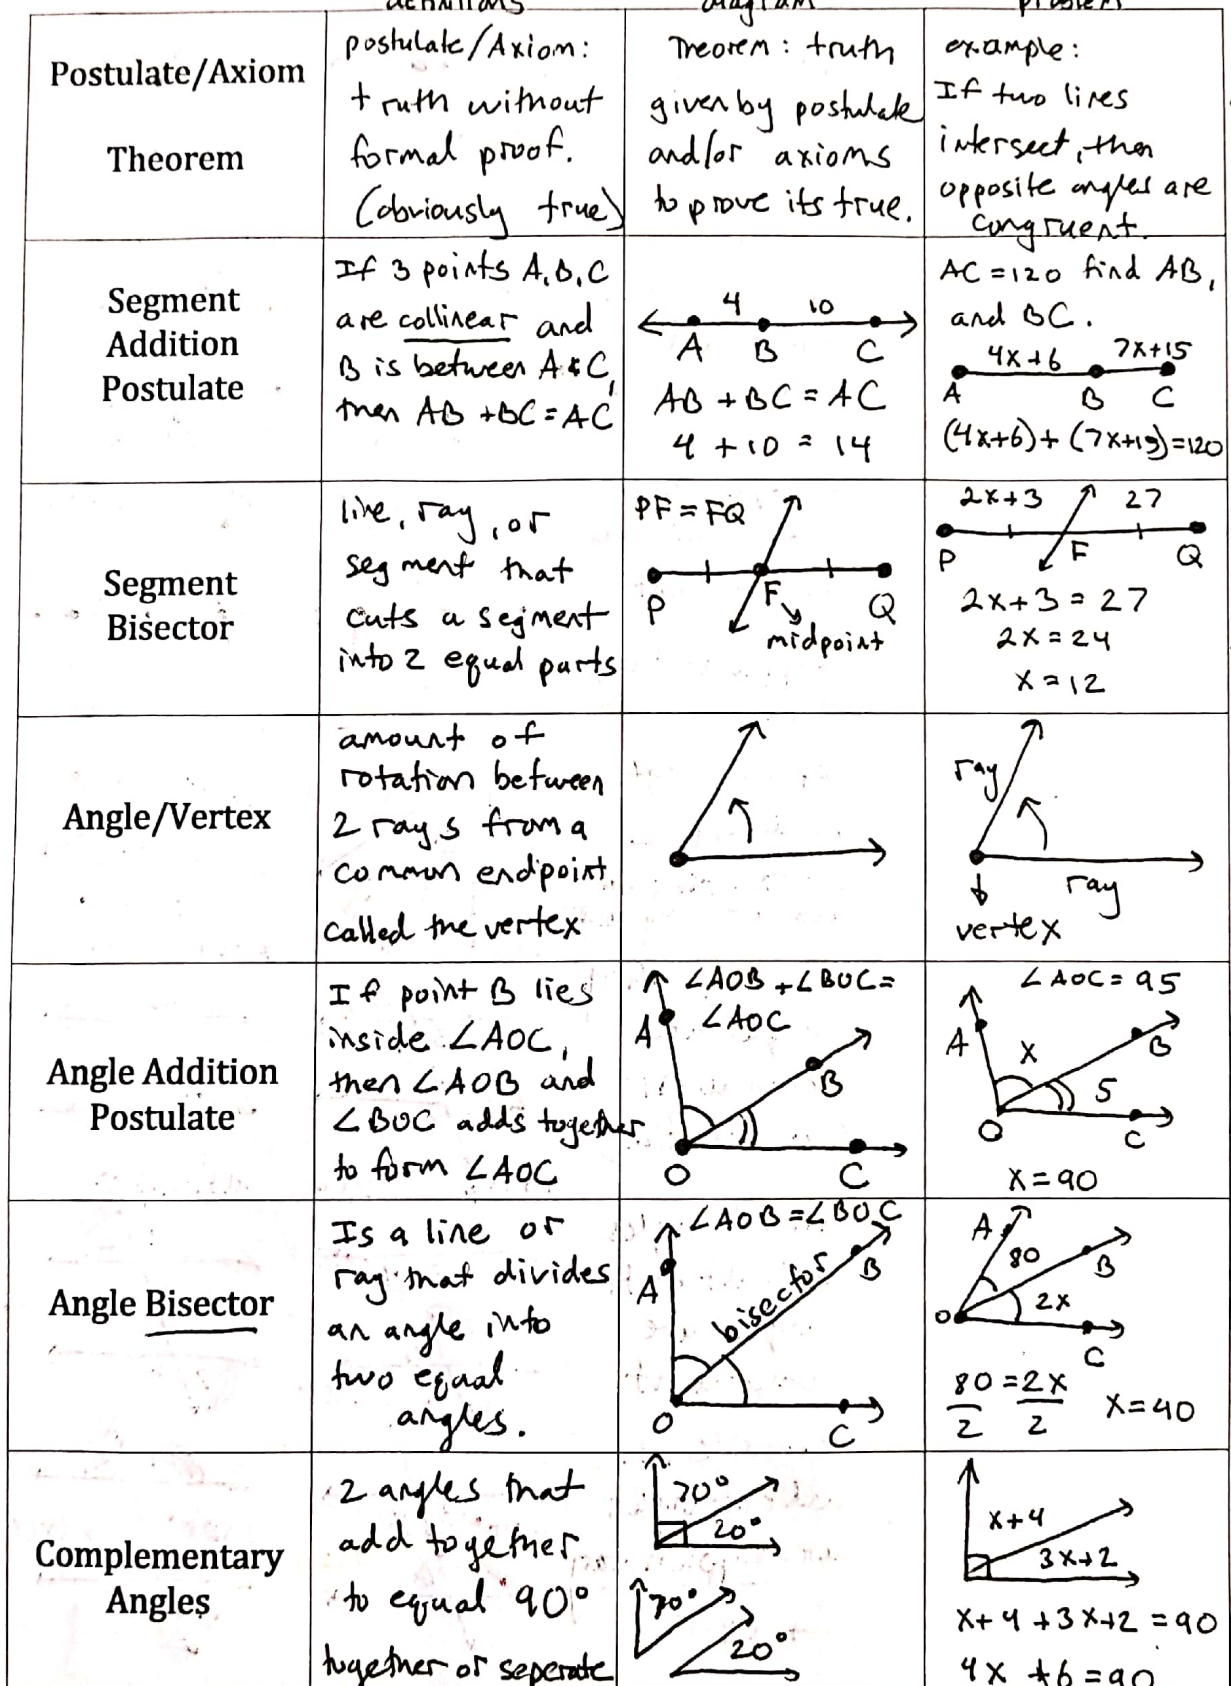 definitions
diagram
problem
Postulate/Axiom
Theorem
postulate/Axiom:
truth without
formal proof.
(obviously true)
Theorem: truth
given by postulate
and/or axioms
to prove its true.
example:
If two lines
intersect, then
opposite angles are
congruent.
Segment
Addition
Postulate
If 3 points A, B, C
are collinear and
B is between A & C,
then AB + BC = AC
4 10
A B C
AB + BC = AC
4 + 10 = 14
AC = 120 find AB,
and BC.
4x+6 7x+15
A B C
(4x+6) + (7x+15) = 120
Segment
Bisector
line, ray, or
segment that
cuts a segment
into 2 equal parts
PF = FQ
P F Q
midpoint
2x+3 27
P F Q
2x+3 = 27
2x = 24
x = 12
Angle/Vertex
amount of
rotation between
2 rays from a
common endpoint.
called the vertex
ray
ray
vertex
Angle Addition
Postulate
If point B lies
inside ∠AOC,
then ∠AOB and
∠BOC adds together
to form ∠AOC
∠AOB + ∠BOC =
∠AOC
A
B
O C
∠AOC = 95
A x B
5
O C
x = 90
Angle Bisector
Is a line or
ray that divides
an angle into
two equal
angles.
∠AOB = ∠BOC
A bisector B
O C
A
80 B
O 2x
C
80 = 2x
2 2
x = 40
Complementary
Angles
2 angles that
add together
to equal 90°
together or seperate
70°
20°
70°
20°
x+4
3x+2
x+4+3x+2 = 90
4x +6 = 90